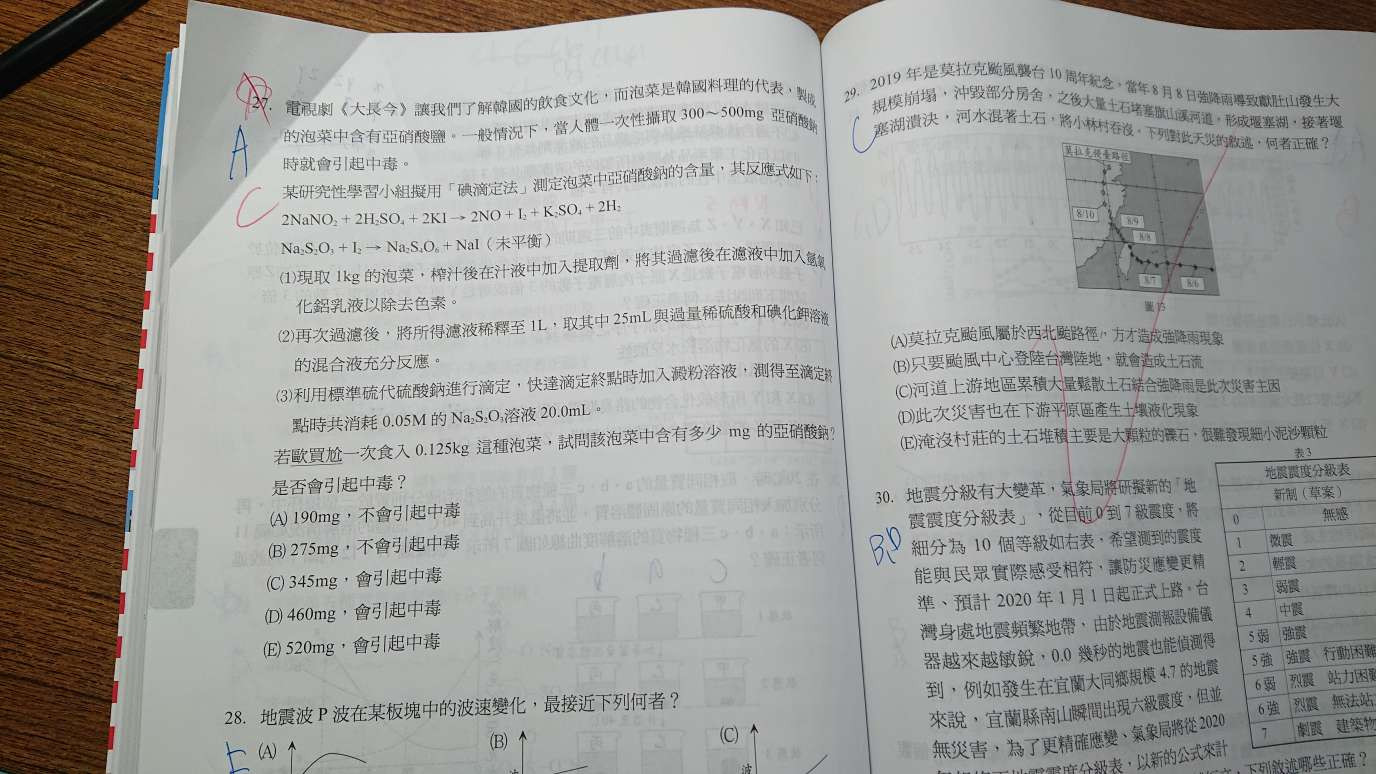 27. 電視劇《大長今》讓我們了解韓國的飲食文化，而泡菜是韓國料理的代表，製成
的泡菜中含有亞硝酸鹽。一般情況下，當人體一次性攝取300～500mg 亞硝酸鈉
時就會引起中毒。
某研究性學習小組擬用「碘滴定法」測定泡菜中亞硝酸鈉的含量，其反應式如下：
2NaNO₂ + 2H₂SO₄ + 2KI → 2NO + I₂ + K₂SO₄ + 2H₂
Na₂S₂O₃ + I₂ → Na₂S₄O₆ + NaI（未平衡）
(1)現取 1kg 的泡菜，榨汁後在汁液中加入提取劑，將其過濾後在濾液中加入氫氧
化鋁乳液以除去色素。
(2)再次過濾後，將所得濾液稀釋至 1L，取其中 25mL 與過量稀硫酸和碘化鉀溶液
的混合液充分反應。
(3)利用標準硫代硫酸鈉進行滴定，快達滴定終點時加入澱粉溶液，測得至滴定終
點時共消耗 0.05M 的 Na₂S₂O₃溶液 20.0mL。
若歐買尬一次食入 0.125kg 這種泡菜，試問該泡菜中含有多少 mg 的亞硝酸鈉？
是否會引起中毒？
(A) 190mg，不會引起中毒
(B) 275mg，不會引起中毒
(C) 345mg，會引起中毒
(D) 460mg，會引起中毒
(E) 520mg，會引起中毒
A
C
28. 地震波 P 波在某板塊中的波速變化，最接近下列何者？
(A)
(B)
(C)
29. 2019 年是莫拉克颱風襲台 10 周年紀念，當年 8 月 8 日強降雨導致獻肚山發生大
規模崩塌，沖毀部分房舍，之後大量土石堵塞旗山溪河道，形成堰塞湖，接著堰
塞湖潰決，河水混著土石，將小林村吞沒。下列對此天災的敘述，何者正確？
C
莫拉克侵臺路徑
8/10
8/9
8/8
8/7
8/6
圖 13
(A)莫拉克颱風屬於西北颱路徑，方才造成強降雨現象
(B)只要颱風中心登陸台灣陸地，就會造成土石流
(C)河道上游地區累積大量鬆散土石結合強降雨是此次災害主因
(D)此次災害也在下游平原區產生土壤液化現象
(E)淹沒村莊的土石堆積主要是大顆粒的礫石，很難發現細小泥沙顆粒
30. 地震分級有大變革，氣象局將研擬新的「地
震震度分級表」，從目前 0 到 7 級震度，將
細分為 10 個等級如右表，希望測到的震度
能與民眾實際感受相符，讓防災應變更精
準、預計 2020 年 1 月 1 日起正式上路。台
灣身處地震頻繁地帶，由於地震測報設備儀
器越來越敏銳，0.0 幾秒的地震也能偵測得
到，例如發生在宜蘭大同鄉規模 4.7 的地震
來說，宜蘭縣南山瞬間出現六級震度，但並
無災害，為了更精確應變、氣象局將從 2020
地震震度分級表，以新的公式來計
下列敘述哪些正確？
B,D
表 3
地震震度分級表
新制（草案）
0 無感
1 微震
2 輕震
3 弱震
4 中震
5 弱 強震
5 強 強震 行動困難
6 弱 烈震 站力困難
6 強 烈震 無法站
7 劇震 建築物